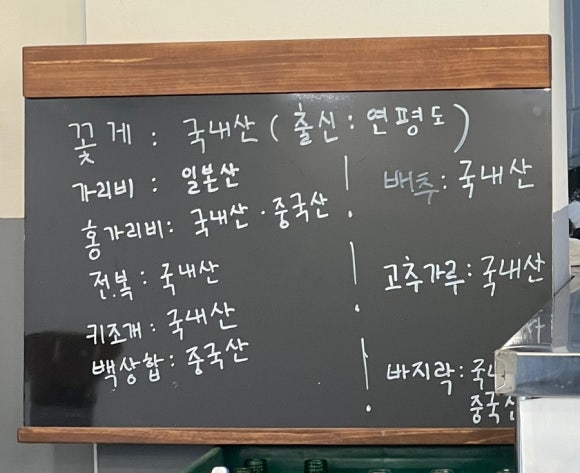 꽃게 : 국내산 ( 출신 : 연평도 )
가리비 : 일본산
홍가리비 : 국내산 · 중국산
전복 : 국내산
키조개 : 국내산
백상합 : 중국산
배추 : 국내산
고추가루 : 국내산
바지락 :